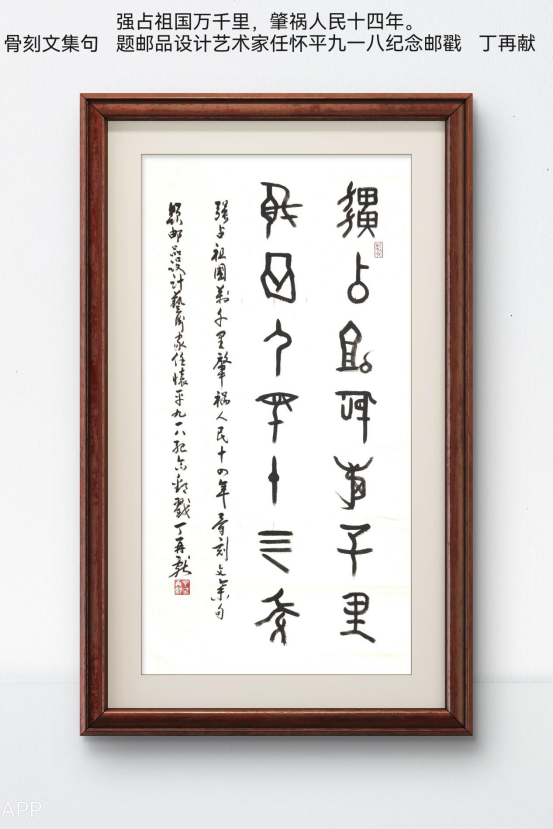 强占祖国万千里，肇祸人民十四年。
骨刻文集句 题邮品设计艺术家任怀平九一八纪念邮戳 丁再献
强占祖國萬千里
肇祸人民十四年
强占祖國萬千里肇祸人民十四年骨刻文集句
题邮品设计藝術家任懷平九一八纪念邮戳丁再献
APP